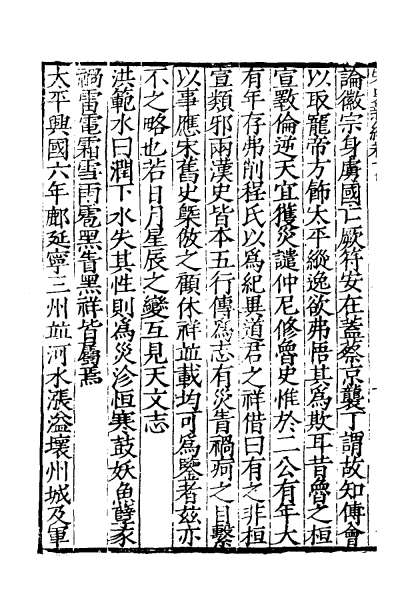 論徽宗身虜國亡厥符安在蓋蔡京襲丁謂故知傅會
以取寵帝方飾太平縱逸欲弗悟其爲欺耳昔魯之桓
宣斁倫逆天宜獲災譴仲尼修魯史惟於二公有年大
有年存弗削程氏以爲紀異道君之祥借曰有之非桓
宣類邪兩漢史皆本五行傳爲志有災眚禍痾之目繫
以事應宋舊史槩倣之顧休祥並載均可爲鑒者玆亦
不之略也若日月星辰之變互見天文志
洪範水曰潤下水失其性則爲災沴恒寒鼓妖魚孽豕
禍雷電霜雪雨雹黑眚黑祥皆屬焉
太平興國六年鄜延寧三州並河水漲溢壞州城及軍